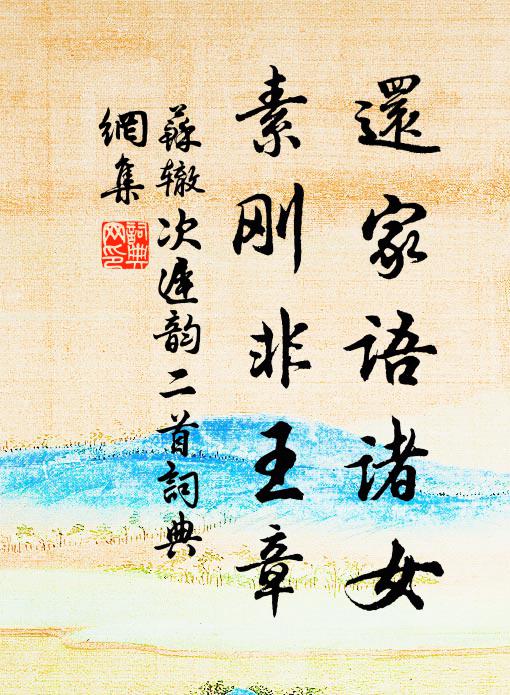 還家語诸女
素刚非王章
蘇辙次遲韵二首詞典
網集
詞典
网印